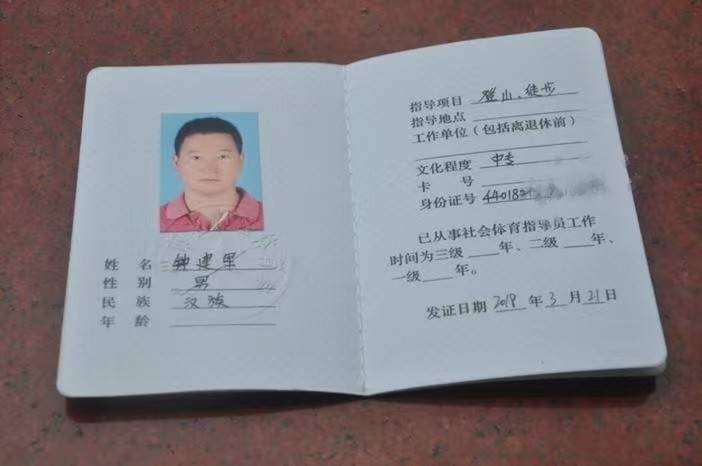 姓 名 钟建军
性 别 男
民 族 汉族
年 龄
指导项目 登山、徒步
指导地点
工作单位(包括离退休前)
文化程度 中专
卡 号
身份证号 440182
已从事社会体育指导员工作
时间为三级 年、二级 年、
一级 年。
发证日期 2019 年 3 月 21 日